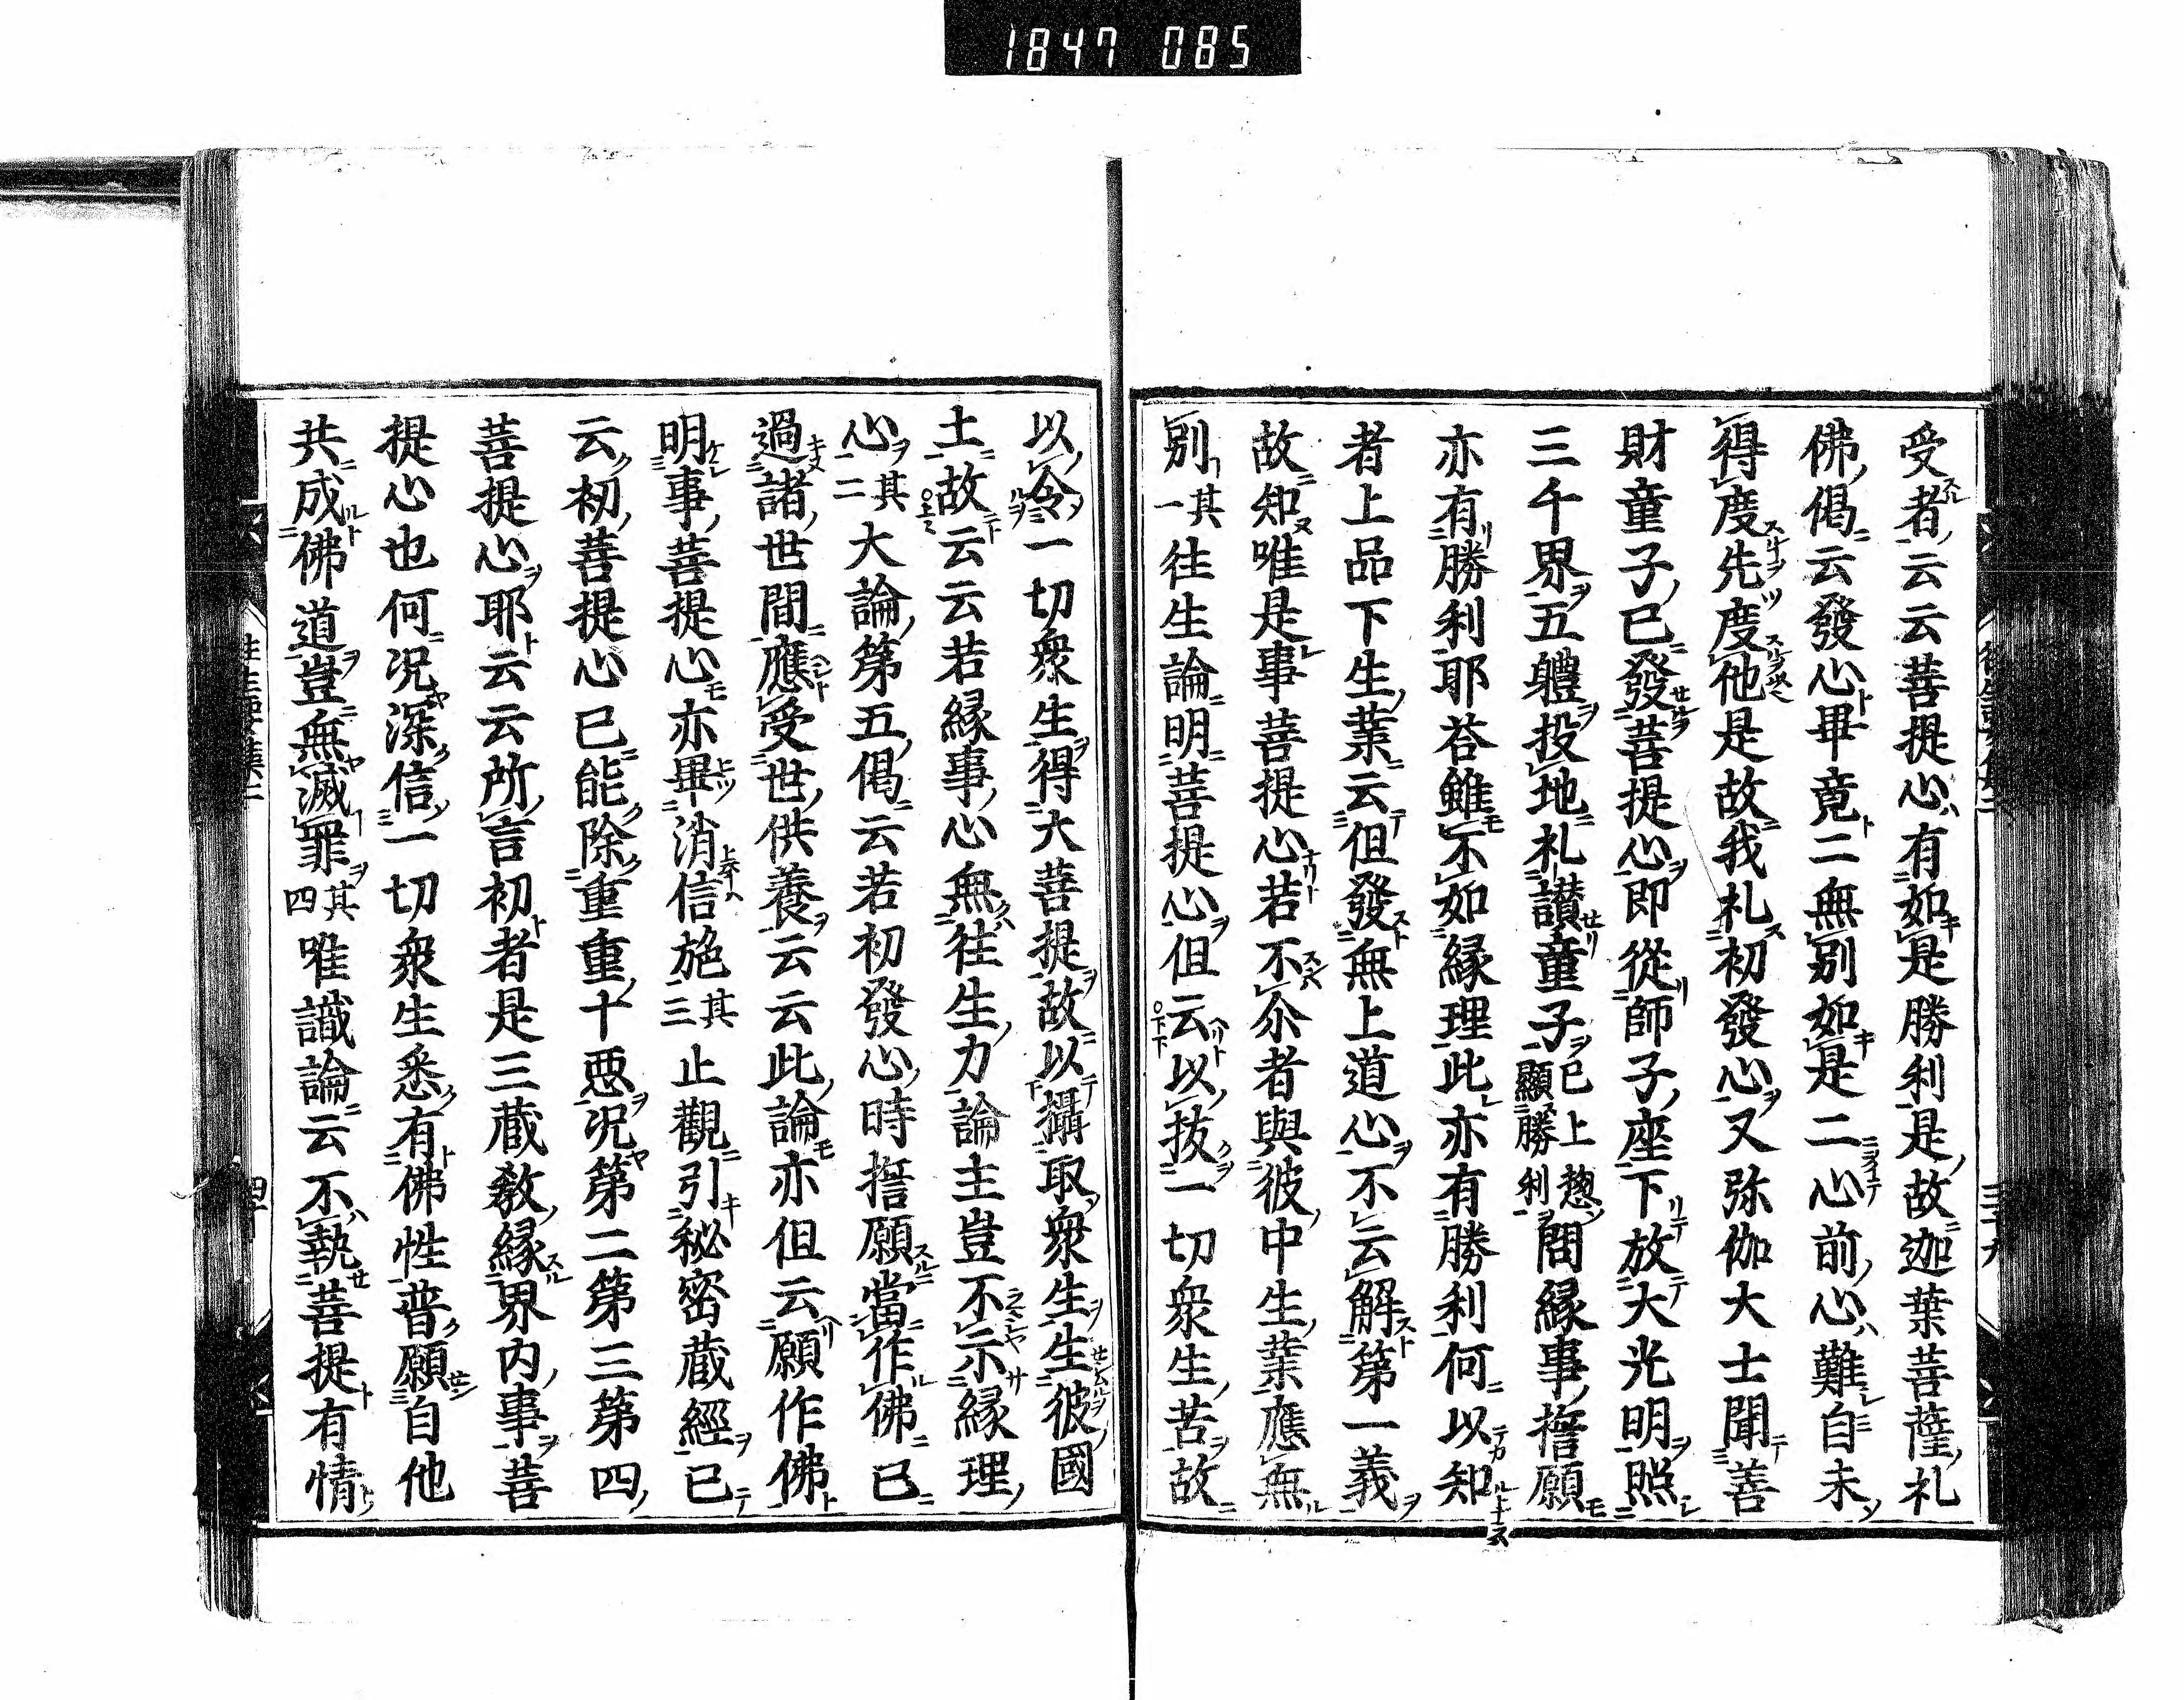 1847 085
受者云云菩提心有如是勝利是故迦葉菩薩礼
佛偈云發心畢竟二無別如是二心前心難自未
得度先度他是故我礼初發心又弥伽大士聞善
財童子已發菩提心即從師子座下放大光明照
三千界五軆投地礼讃童子已上惣顯勝利問縁事誓願
亦有勝利耶荅雖不如縁理此亦有勝利何以知
者上品下生業云但發無上道心不云解第一義
故知唯是事菩提心若不尒者與彼中生業應無
別其一往生論明菩提心但云以拔一切衆生苦故
以令一切衆生得大菩提故以攝取衆生生彼國
土故云云若縁事心無往生力論主豈不示縁理
心其二大論第五偈云若初發心時誓願當作佛已
過諸世間應受世供養云云此論亦但云願作佛
明事菩提心亦畢消信施其三止觀引秘密藏經已
云初菩提心已能除重重十惡况第二第三第四
菩提心耶云云所言初者是三蔵教縁界内事菩
提心也何况深信一切衆生悉有佛性普願自他
共成佛道豈無滅罪其四唯識論云不執菩提有情